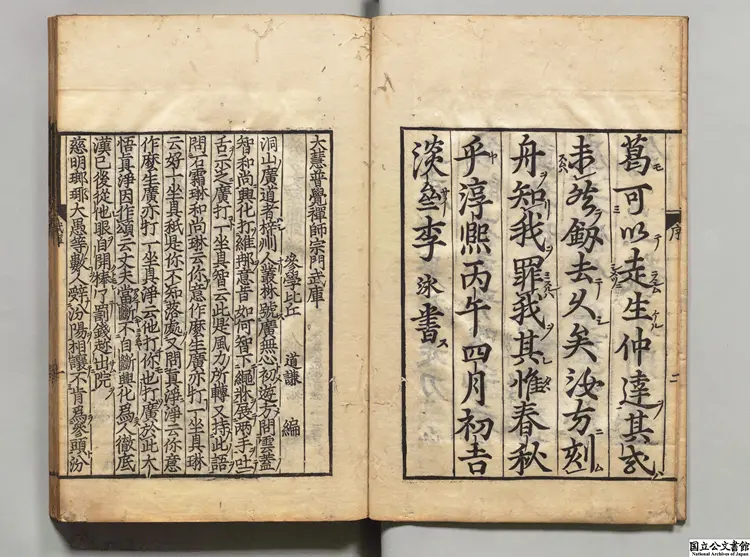 序
二
葛可以走生仲達其或
未然劔去久矣汝方刻
舟知我罪我其惟春秋
乎淳熙丙午四月初吉
淡李泳書
大慧普覺禪師宗門武庫
參學比丘 道謙 編
洞山廣道者梓州人叢林號廣無心初遊方問雲蓋
智和尚興化打維那意旨如何智下繩牀展兩手吐
舌示之廣打一坐具智云此是風力所轉又持此語
問石霜琳和尚琳云你意作麼生廣亦打一坐具琳
云好一坐具秖是你不知落處又問真淨淨云你意
作麼生廣亦打一坐具淨云他打你也打廣於此大
悟真淨因作頌云丈夫當斷不自斷興化為人徹底
漢已後從他眼自開棒了罰錢趂出院
慈明瑯琊大愚等數人辭汾陽相讓不肯為參頭汾
国立公文書館
National Archives of Japan